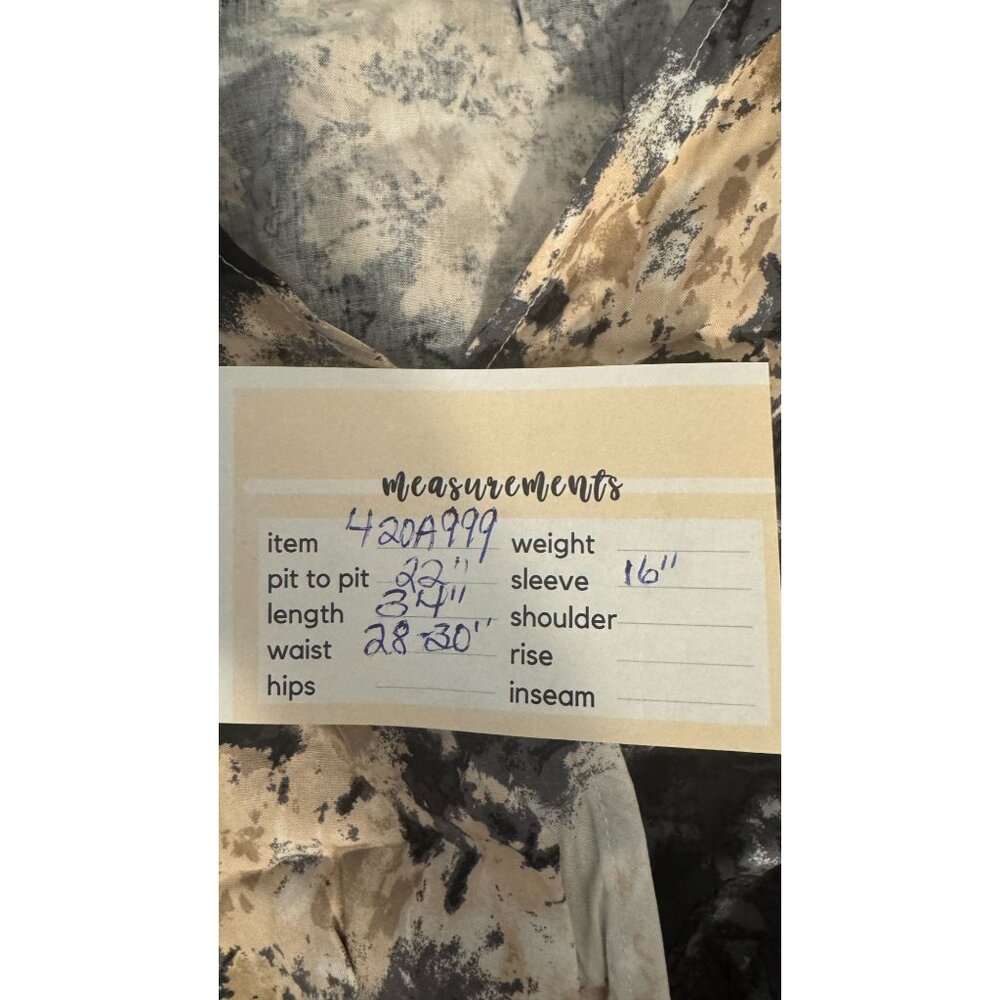 measurements
item 420A999 weight
pit to pit 22" sleeve 16"
length 34" shoulder
waist 28-30" rise
hips inseam